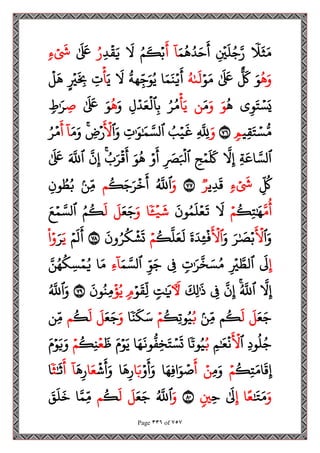 مَثَلًا رَّجُلَيْنِ أَحَدُهُمَآ أَبْكَمُ لَا يَقْدِرُ عَلَىٰ شَىْءٍ
وَهُوَ كَلٌّ عَلَىٰ مَوْلَىٰهُ أَيْنَمَا يُوَجِّههُّ لَا يَأْتِ بِخَيْرٍ هَلْ
يَسْتَوِى هُوَ وَمَن يَأْمُرُ بِٱلْعَدْلِ وَهُوَ عَلَىٰ صِرَٰطٍ
مُّسْتَقِيمٍ ٧٦ وَلِلَّهِ غَيْبُ ٱلسَّمَٰوَٰتِ وَٱلْأَرْضِ ۚ وَمَآ أَمْرُ
ٱلسَّاعَةِ إِلَّا كَلَمْحِ ٱلْبَصَرِ أَوْ هُوَ أَقْرَبُ ۚ إِنَّ ٱللَّهَ عَلَىٰ
كُلِّ شَىْءٍ قَدِيرٌ ٧٧ وَٱللَّهُ أَخْرَجَكُم مِّنۢ بُطُونِ
أُمَّهَٰتِكُمْ لَا تَعْلَمُونَ شَيْـًٔا وَجَعَلَ لَكُمُ ٱلسَّمْعَ
وَٱلْأَبْصَٰرَ وَٱلْأَفْـِٔدَةَ لَعَلَّكُمْ تَشْكُرُونَ ٧٨ أَلَمْ يَرَوْا۟
إِلَى ٱلطَّيْرِ مُسَخَّرَٰتٍ فِى جَوِّ ٱلسَّمَآءِ مَا يُمْسِكُهُنَّ
إِلَّا ٱللَّهُ ۗ إِنَّ فِى ذَٰلِكَ لَـَٔايَٰتٍ لِّقَوْمٍ يُؤْمِنُونَ ٧٩ وَٱللَّهُ
جَعَلَ لَكُم مِّنۢ بُيُوتِكُمْ سَكَنًا وَجَعَلَ لَكُم مِّن
جُلُودِ ٱلْأَنْعَٰمِ بُيُوتًا تَسْتَخِفُّونَهَا يَوْمَ ظَعْنِكُمْ وَيَوْمَ
إِقَامَتِكُمْ ۙ وَمِنْ أَصْوَافِهَا وَأَوْبَارِهَا وَأَشْعَارِهَآ أَثَٰثًا
وَمَتَٰعًا إِلَىٰ حِينٍ ٨٠ وَٱللَّهُ جَعَلَ لَكُم مِّمَّا خَلَقَ
Page ٣٤٦ of ٧٥٧